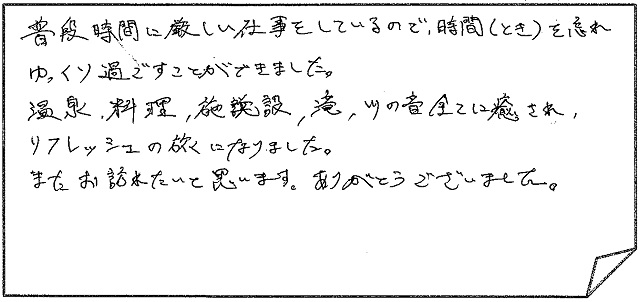 普段時間に厳しい仕事をしているので、時間(とき)を忘れ
ゆっくり過ごすことができました。
温泉、料理、施設、滝、川の音全てに癒され、
リフレッシュの旅になりました。
またお訪れたいと思います。ありがとうございました。